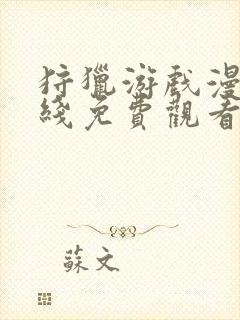 狩獵游戲漫
綫免費觀看
蘇文